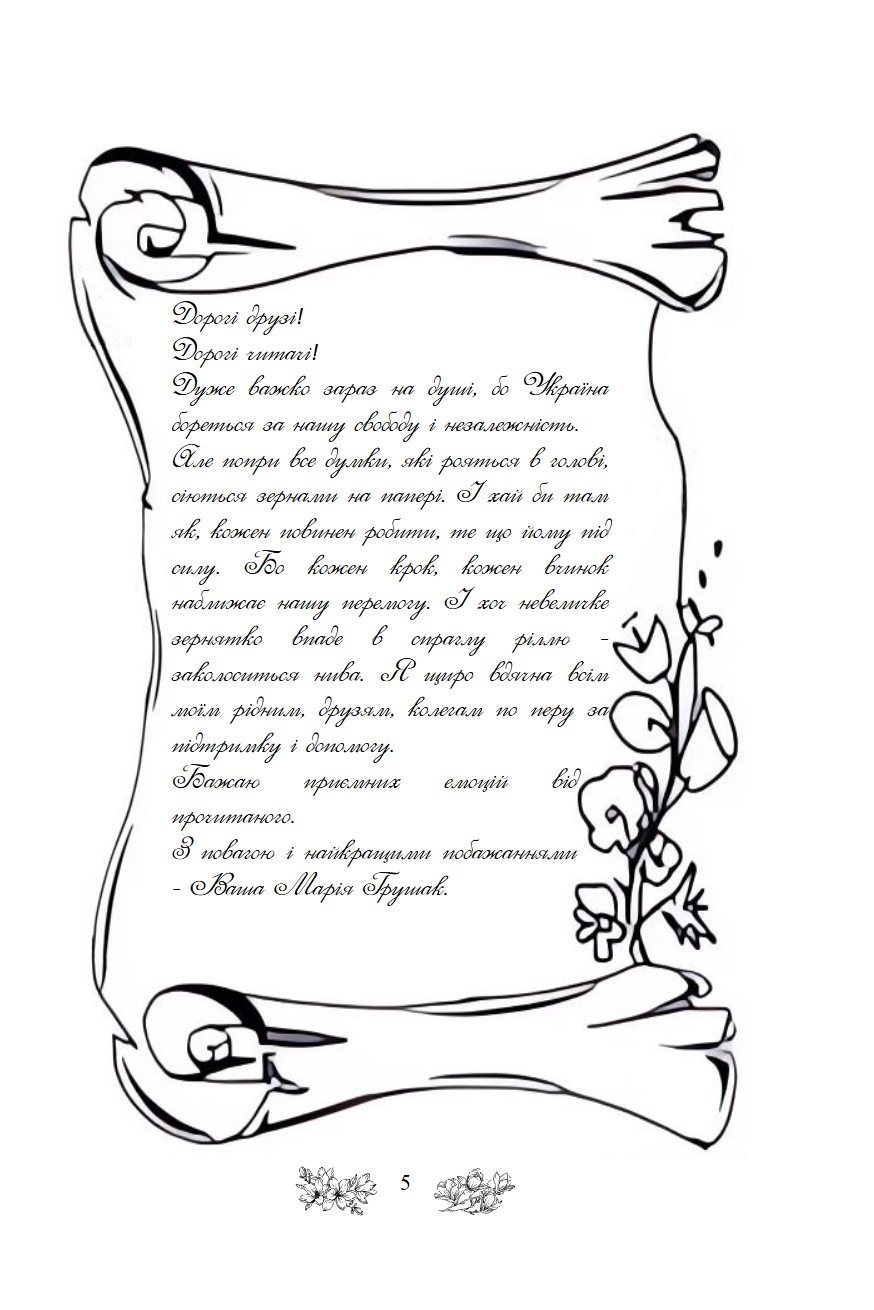 Дорогі друзі!
Дорогі читачі!
Дуже важко зараз на душі, бо Україна
бореться за нашу свободу і незалежність.
Але попри все думки, які рояться в голові,
сіються зернами на папері. І хай би там
як, кожен повинен робити, те що йому під
силу. Бо кожен крок, кожен вчинок
наближає нашу перемогу. І хоч невеличке
зернятко впаде в спраглу ріллю -
заколоситься нива. Я щиро вдячна всім
моїм рідним, друзям, колегам по перу за
підтримку і допомогу.
Бажаю приємних емоцій від
прочитаного.
З повагою і найкращими побажаннями
- Ваша Марія Грушак.
5